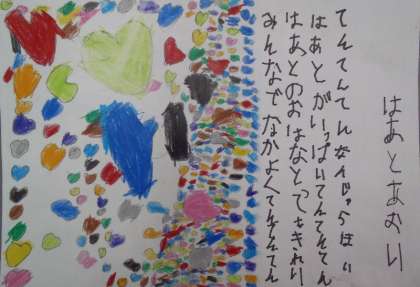 はあとあおい
てんてんてんなんじゃらほい
はあとがいっぱいてんてんてん
はあとのおはなとってもきれい
みんなでなかよくてんてんてん